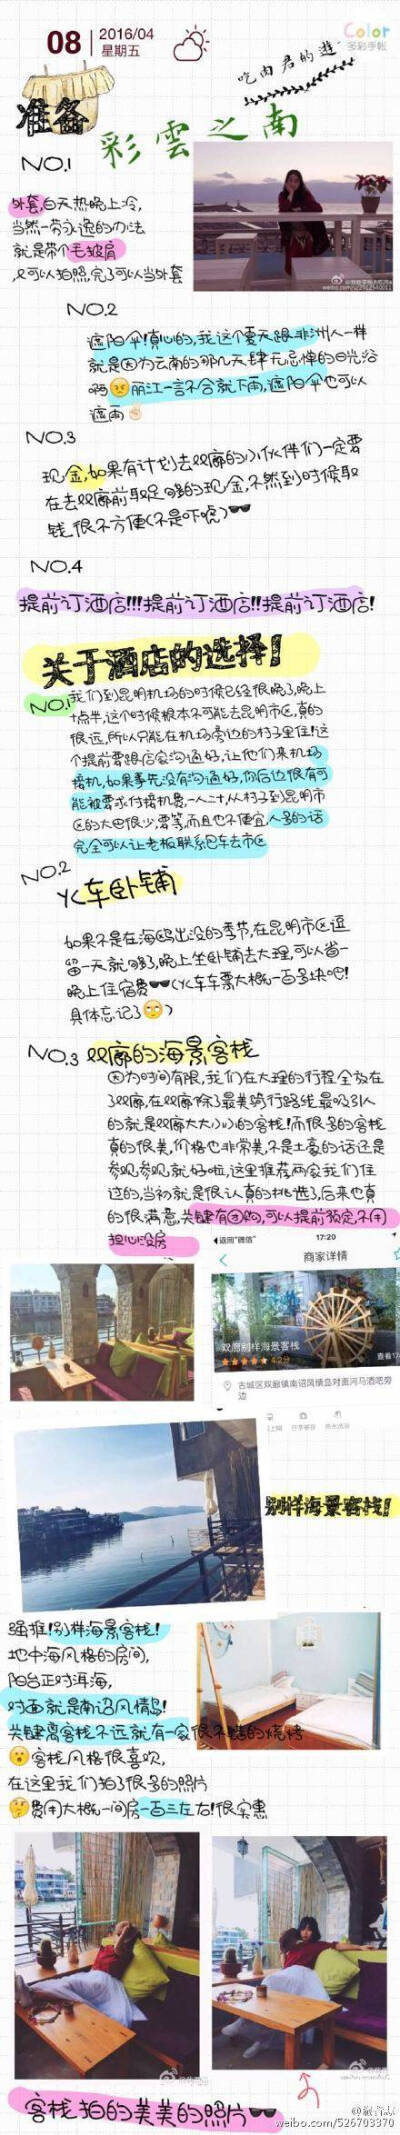 08
2016/04
星期五
Color
多彩手帐
吃肉君的遊
准备
彩雲之南
NO.1
外套,白天热晚上冷,
当然一劳永逸的办法
就是带个毛披肩
又可以拍照,完了可以当外套
NO.2
遮阳伞!真心的,我这个夏天跟非洲人一样
就是因为云南的那几天肆无忌惮的日光浴
啊 丽江一言不合就下雨,遮阳伞也可以
遮雨
NO.3
现金,如果有计划去双廊的小伙伴们一定要
在去双廊前取足够的现金,不然到时候取
钱很不方便(不是吓唬)
NO.4
提前订酒店!!!提前订酒店!!提前订酒店!
关于酒店的选择!
NO.1
我们到昆明机场的时候已经很晚了,晚上
十点半,这个时候根本不可能去昆明市区,真的
很远,所以只能在机场旁边的村子里住!这
个提前要跟店家沟通好,让他们来机场
接机,如果事先没有沟通好,你后边很有可
能被要求付接机费,一人二十,从村子到昆明市
区的大巴很少,要等,而且也不便宜,人多的话
完全可以让老板联系包车去市区
NO.2
火车卧铺
如果不是在海鸥出没的季节,在昆明市区逗
留一天就够了,晚上坐卧铺去大理,可以省一
晚上住宿费 (火车车票大概一百多块吧!
具体忘记了 )
NO.3 双廊的海景客栈
因为时间有限,我们在大理的行程全放在
了双廊,在双廊除了最美骑行路线最吸引人
的就是双廊大大小小的客栈!而很多的客栈
真的很美,价格也非常美,不是土豪的话还是
参观参观就好啦,这里推荐两家我们住
过的,当初就是很认真的挑选了,后来也真
的很满意,关键有团购,可以提前预定,不用
担心没房
返回"微信"
17:20
商家详情
双廊别样海景客栈
4.2分
查看174
古城区双廊镇南诏风情岛对面河马酒吧旁
边
别样海景客栈!
强推!别样海景客栈!
地中海风格的房间,
阳台正对洱海,
对面就是南诏风情岛!
关键离客栈不远就有一家很不错的烧烤
客栈风格很喜欢,
在这里我们拍了很多的照片
费用大概一间房一百三左右!很实惠
客栈拍的美美的照片
weibo.com/526703370